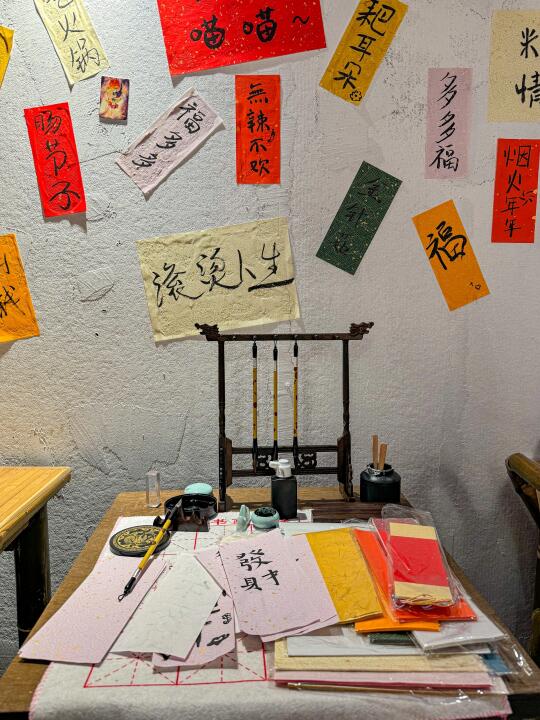 火锅
喵喵~
耙耳朵
情
肠节子
福多多
無辣不欢
多多福
烟火年年
福
滚烫人生
發財